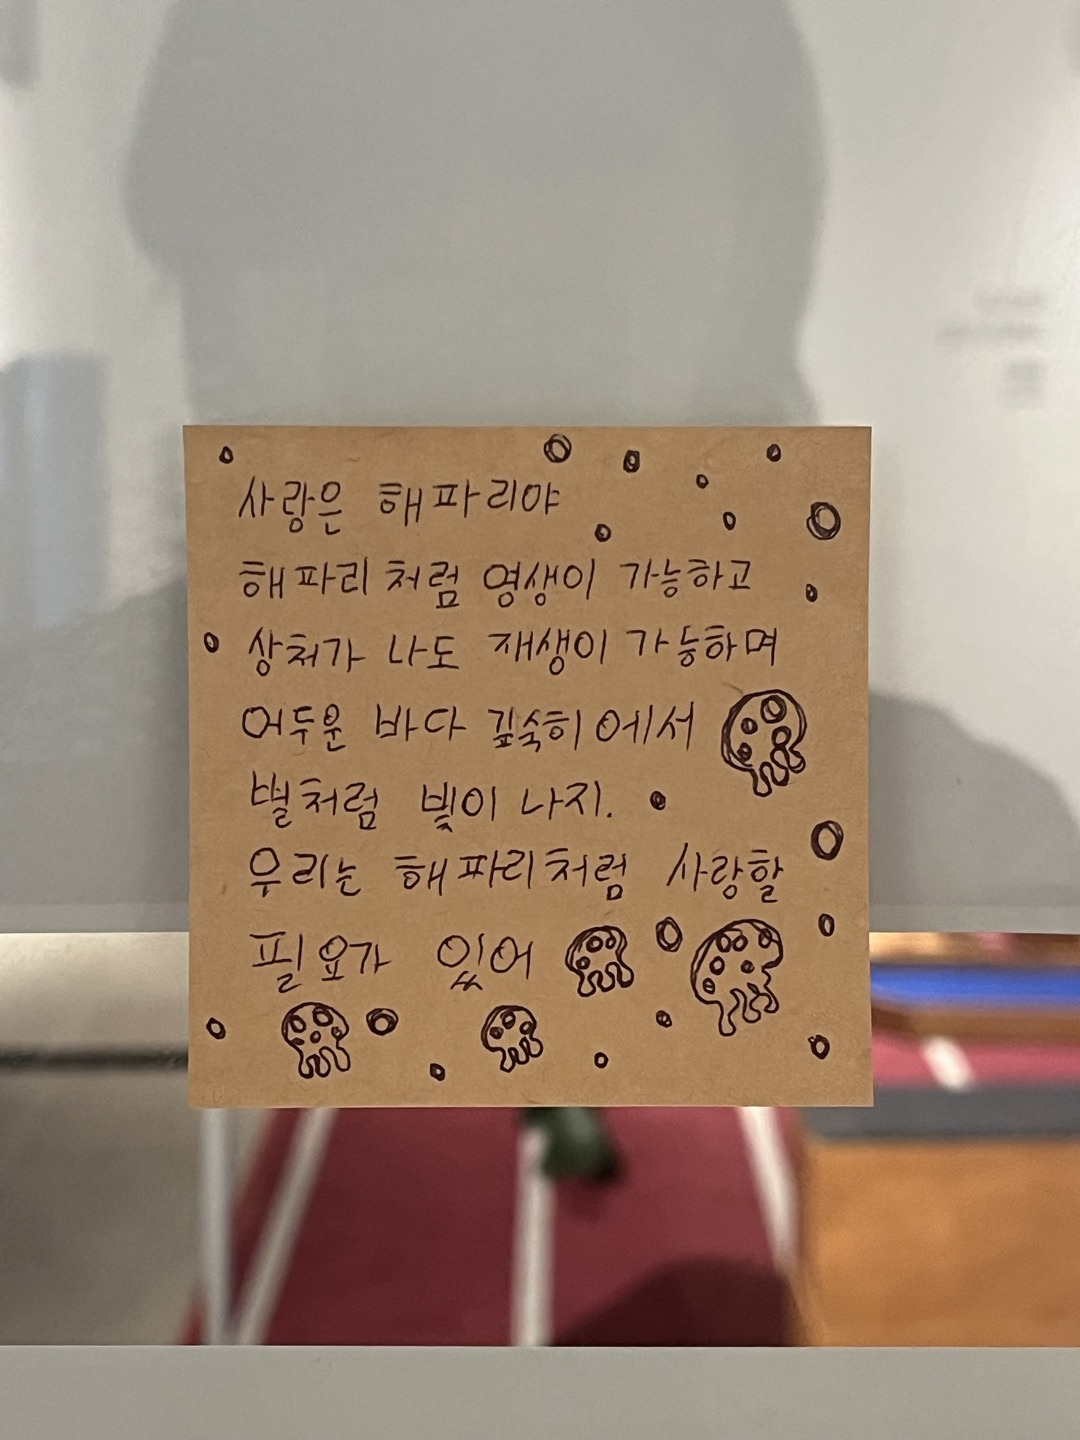 사랑은 해파리야
해파리처럼 영생이 가능하고
상처가 나도 재생이 가능하며
어두운 바다 깊숙히에서
별처럼 빛이 나지.
우리는 해파리처럼 사랑할
필요가 있어